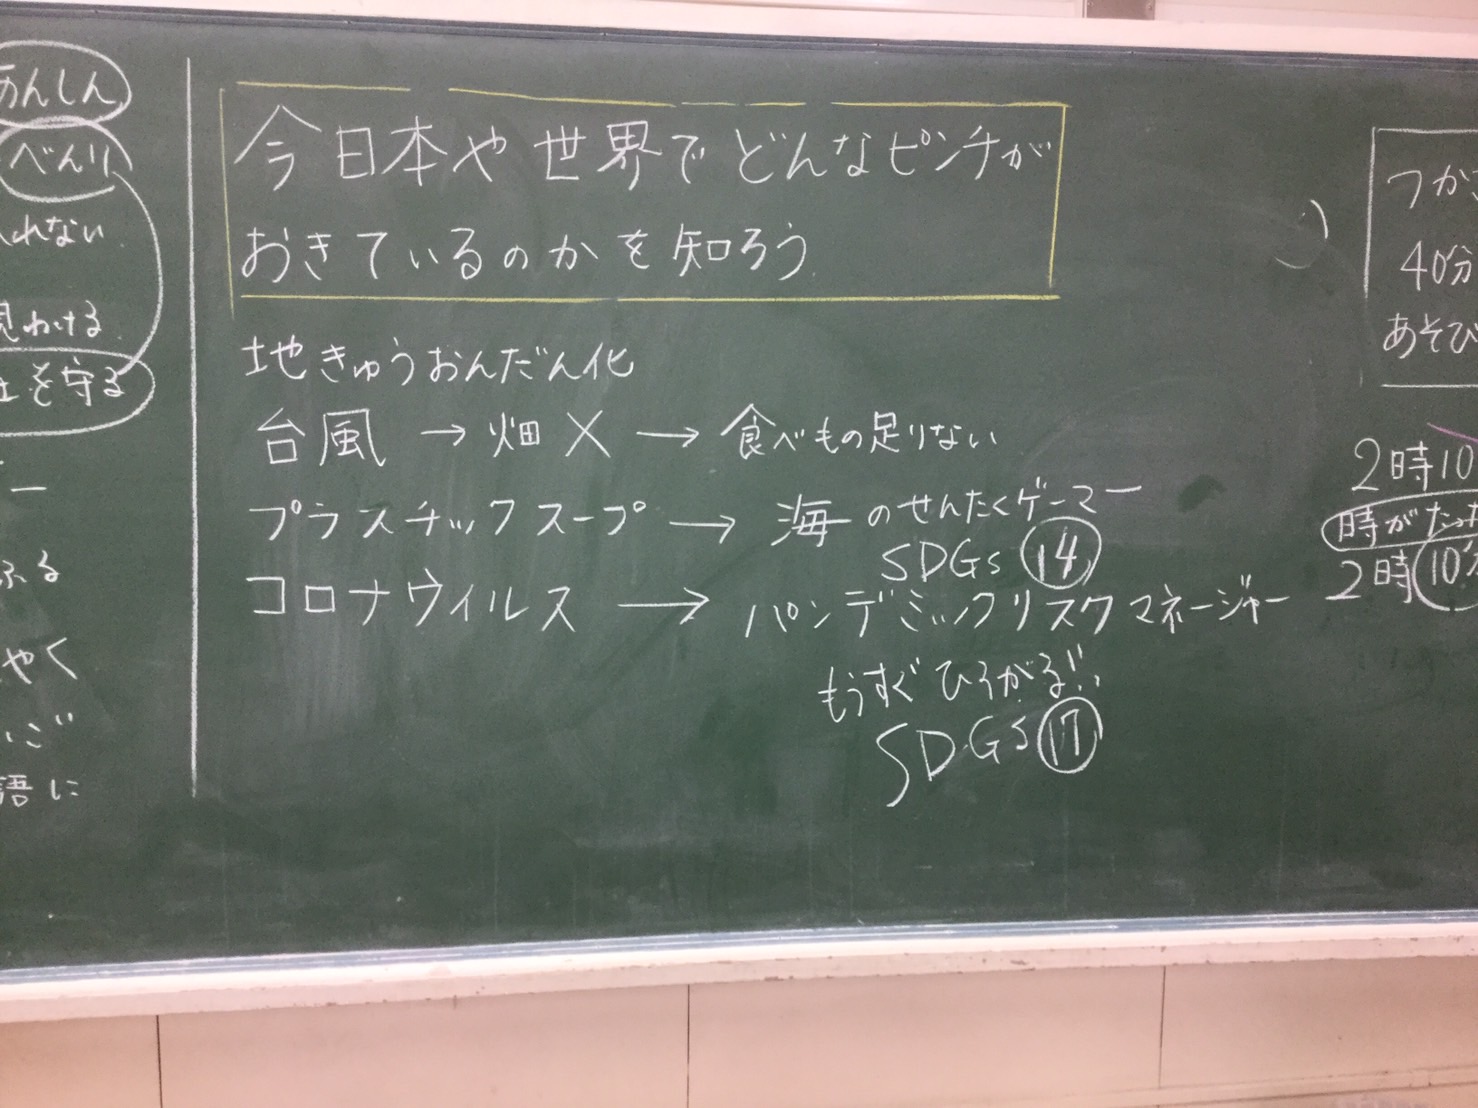 あんしん
べんり
れない
見わける
を守る
ー
ふる
やく
いご
語に
今日本や世界でどんなピンチが
おきているのかを知ろう
地きゅうおんだん化
台風 → 畑 × → 食べもの足りない
プラスチックスープ → 海のせんたくゲーマー
SDGs ⑭
コロナウイルス → パンデミックリスクマネージャー
もうすぐひろがる!!
SDGs ⑰
つが
40分
あそび
2時10
時がたった
2時10分